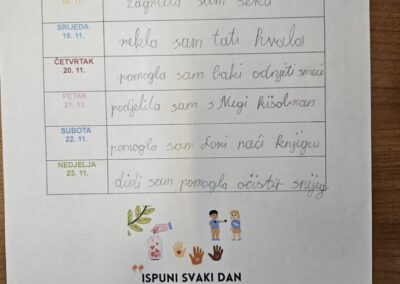 18. 11. zagrlila sam seku
SRIJEDA
19. 11. rekla sam tati hvala
ČETVRTAK
20. 11. pomogla sam baki odnijeti smeće
PETAK
21. 11. podjelila sam s Megi kišobran
SUBOTA
22. 11. pomogla sam Loni naći knjigu
NEDJELJA
23. 11. didi sam pomogla očistit snijeg
ISPUNI SVAKI DAN